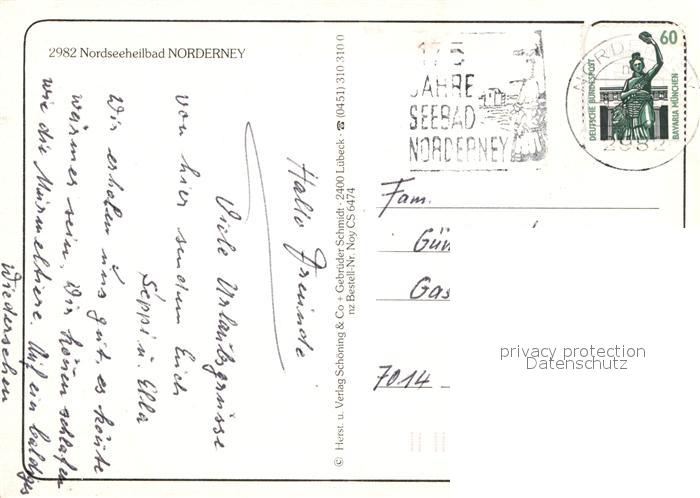 2982 Nordseeheilbad NORDERNEY
Hallo Freunde
Viele Urlaubsgrüsse
von hier senden Euch
Seppi u. Ella
Wir erholen uns gut, es könte
wärmer sein. Wir können schlafen
wie die Murmeltiere. Auf ein baldiges
Wiedersehen
© Herst. u. Verlag Schöning & Co + Gebrüder Schmidt · 2400 Lübeck · ☎ (0451) 310 310 0
nz Bestell-Nr. Noy CS 6474
175
JAHRE
SEEBAD
NORDERNEY
2982
60
DEUTSCHE BUNDESPOST
BAVARIA MÜNCHEN
Fam.
Gün
Gas
7014
privacy protection
Datenschutz